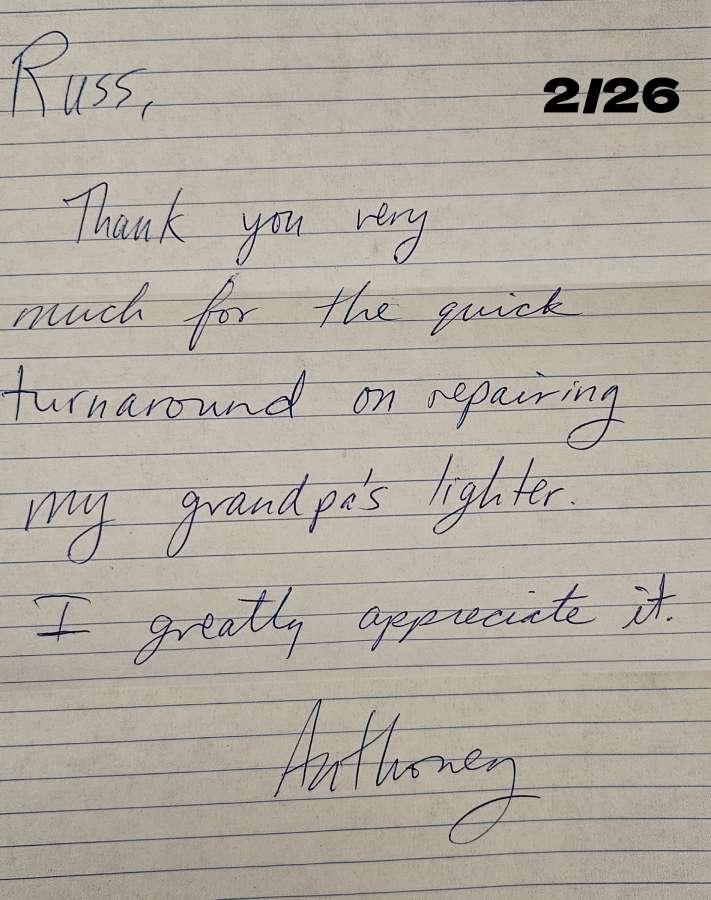 Russ,
2/26
Thank you very
much for the quick
turnaround on repairing
my grandpa's lighter.
I greatly appreciate it.
Anthoney